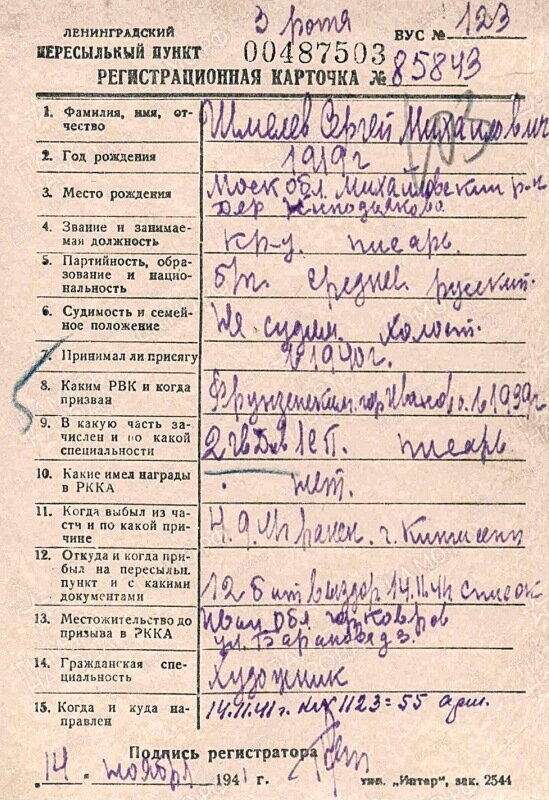 3 рота
ЛЕНИНГРАДСКИЙ ВУС № 123
ПЕРЕСЫЛЬНЫЙ ПУНКТ 00487503
РЕГИСТРАЦИОННАЯ КАРТОЧКА № 85843
103
1. Фамилия, имя, отчество Шмелев Сергей Михайлович
2. Год рождения 1919 г
3. Место рождения Моск Обл. Михайловский р-н
Дер
4. Звание и занимаемая должность кр-ц. писарь.
5. Партийность, образование и национальность б/п. среднее русский.
6. Судимость и семейное положение Не судим. холост.
7. Принимал ли присягу 1940 г.
8. Каким РВК и когда призван Фрунзенским гор Иваново. в 1939 г
9. В какую часть зачислен и по какой специальности 2 гв 1 сп. писарь
10. Какие имел награды в РККА нет.
11. Когда выбыл из части и по какой причине ранен. г.
12. Откуда и когда прибыл на пересыльн. пункт и с какими документами 12 бат выздор 14.11.41 список
13. Местожительство до призыва в РККА Иван Обл. гор Ковров
ул.
14. Гражданская специальность Художник
15. Когда и куда направлен 14.11.41 г. 1123 = 55 арм.
Подпись регистратора
"14" ноября 1941 г. тип. „Интер", зак. 2544